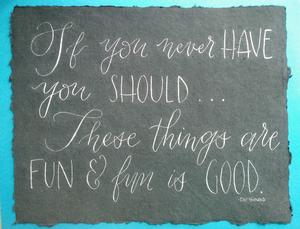 If you never HAVE
you SHOULD...
These things are
FUN & fun is GOOD.